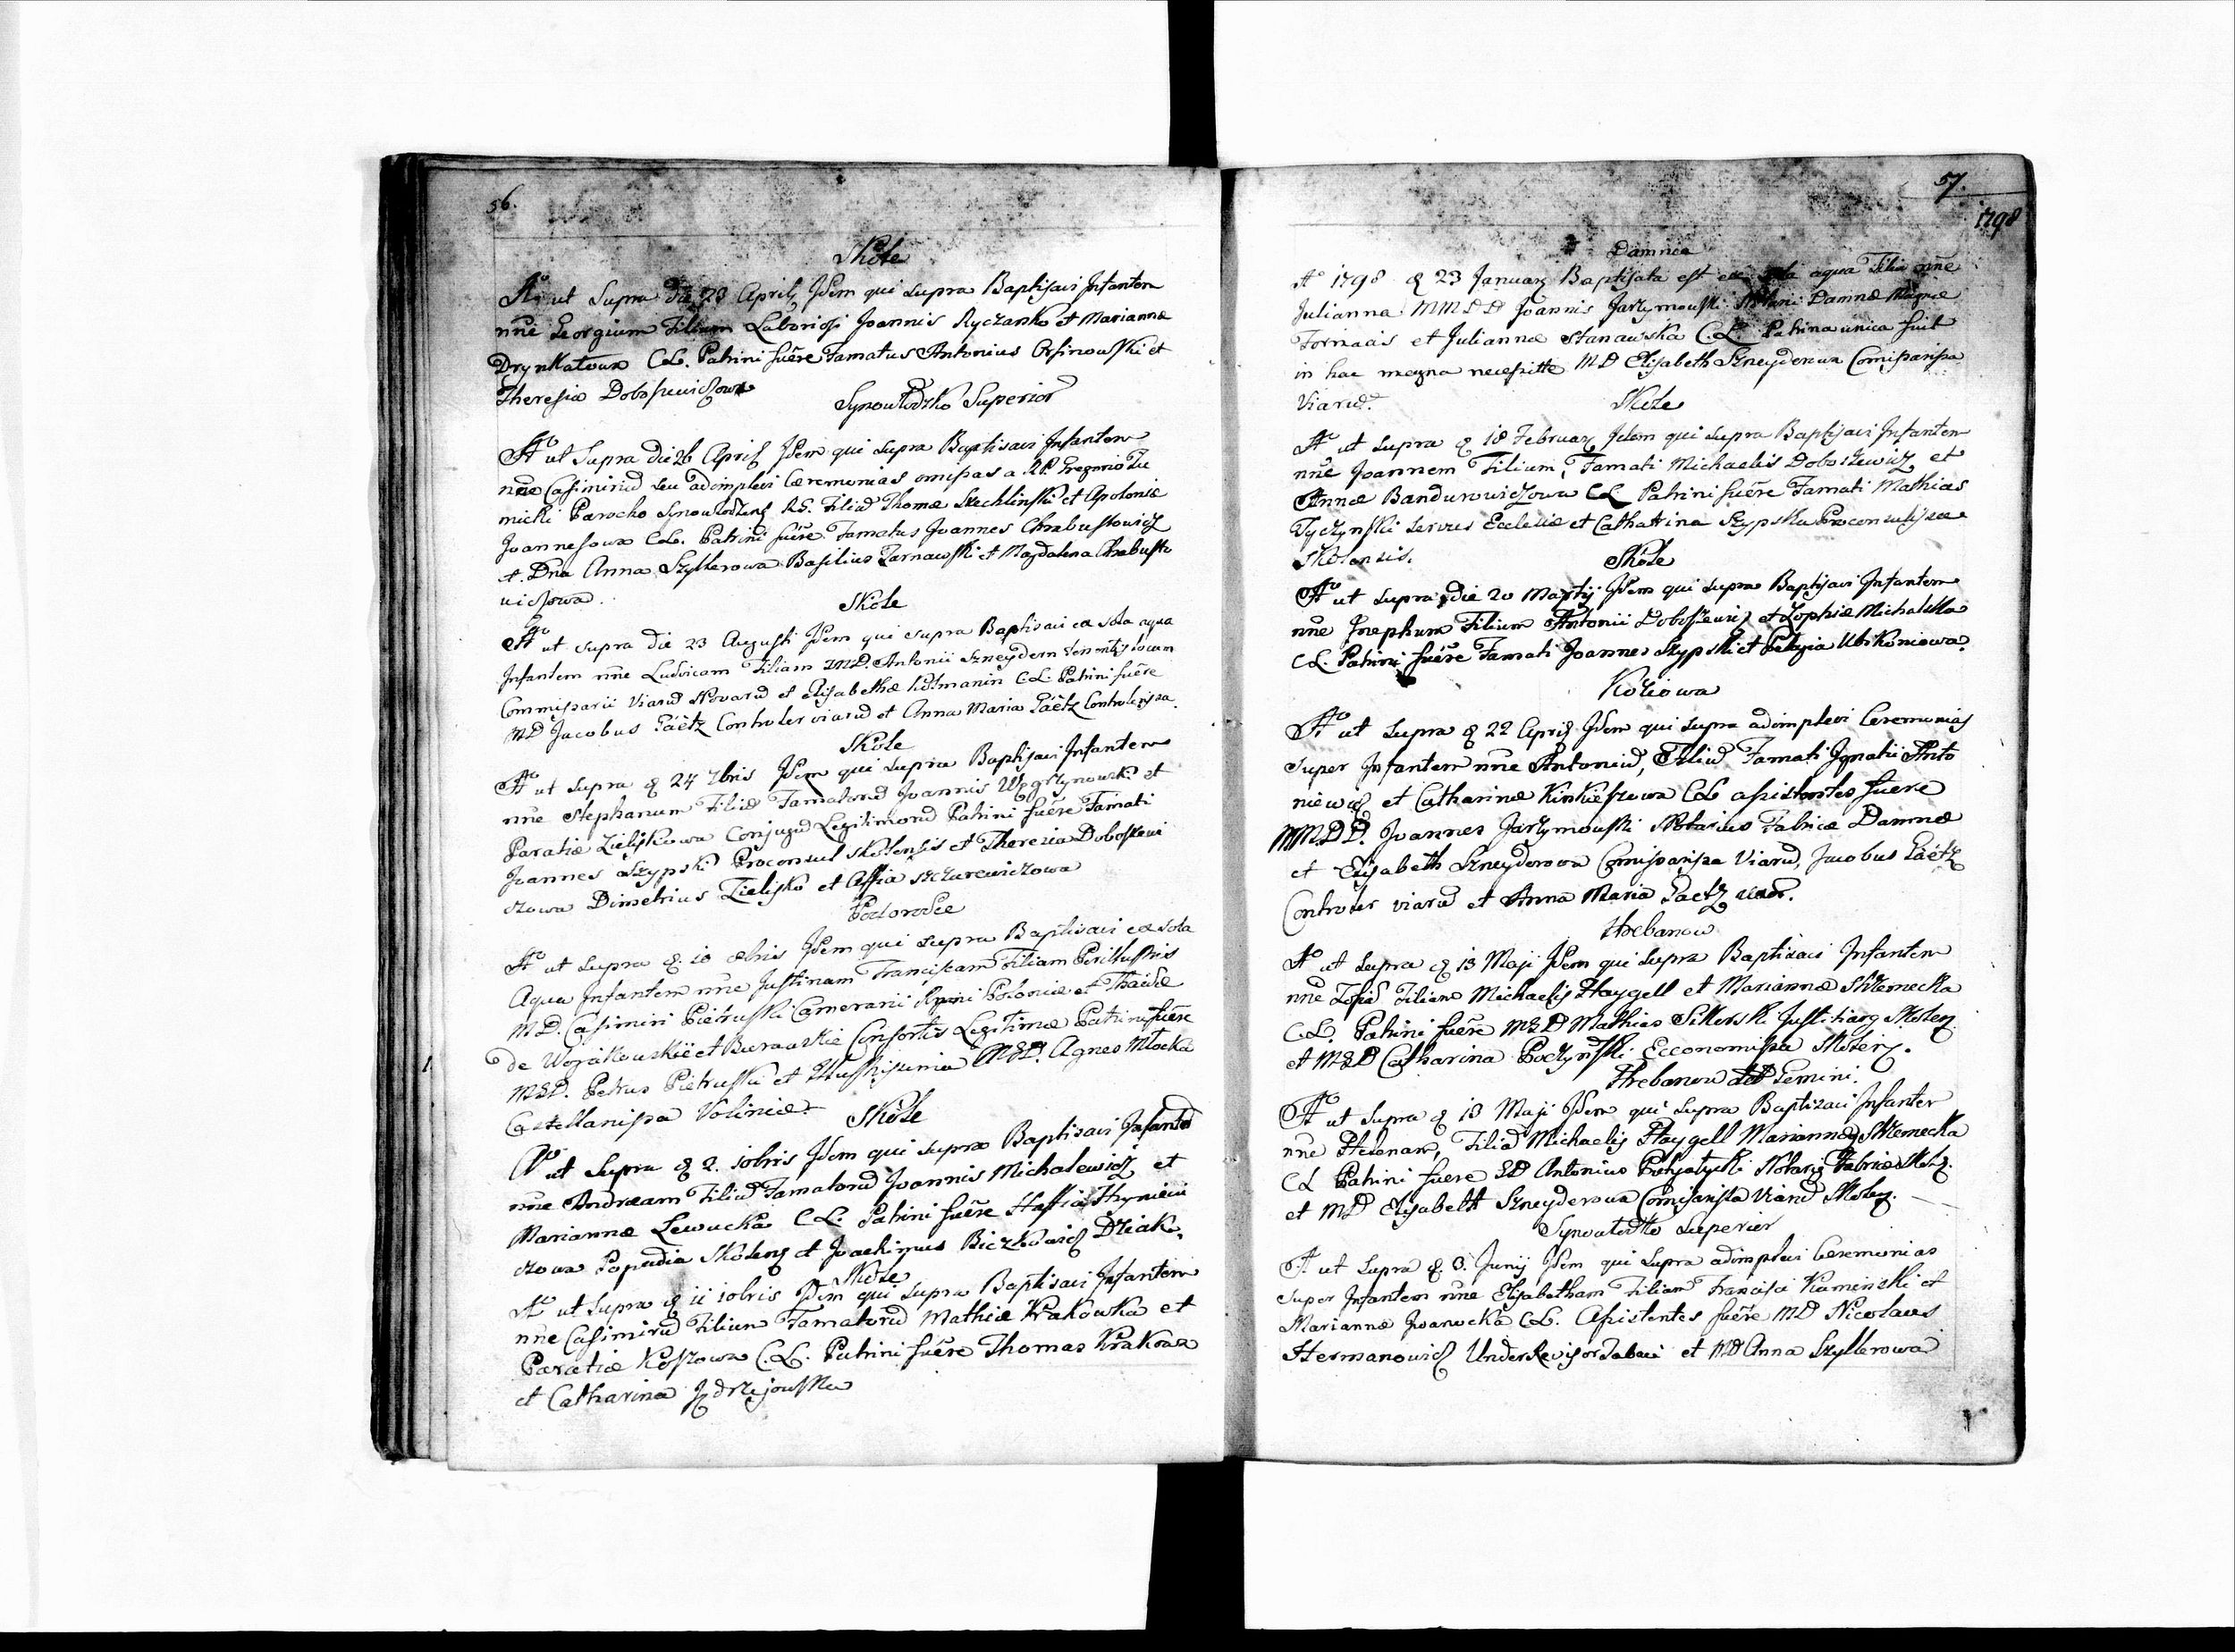 56.
Skole
Aº ut Supra die 23 Aprilis Idem qui supra Baptisavi Infantem
nñe Georgium Filium Laboriosi Joannis Ryczanko et Marianna
Drynkatowa C.L. Patrini fuêre Famatus Antonius Osinowski et
Theresia Doboszewiczowa
Synowodzko Superior
Aº ut Supra die 26 April Idem qui supra Baptisavi Infantem
nñe Casimirũ seu adimplevi Ceremonias omissas a RP. Gregorio Tu
micki Parocho Synowodzens R.G. Filiũ Thomæ Stechlinski et Apoloniæ
Joannesowa C.L. Patrini fuêre Famatus Joannes Chrabustowicz
et Dna Anna Szyllerowa Basilius Tarnawski et Magdalena Chrabusto
wiczowa.
Skole
Aº ut supra die 23 Augusti Idem qui supra Baptisavi ex sola aqua
Infantem nñe Ludvicam Filiam MD. Antonii Szneydern tenentis locum
Commissarii Viarũ Novarũ et Elisabethæ Holmanin C.L. Patrini fuêre
MD Jacobus Päetz Controler viarũ et Anna Maria Päetz Controlerissa.
Skole
Aº ut supra d 24 7bris Idem qui supra Baptisavi Infantem
nñe Stephanum Filiũ Famatorũ Joannis Węgrzynowski et
Paratiæ Zieliskowa Conjugũ Legitimorũ Patrini fuêre Famati
Joannes Szypski Proconsul Skolensis et Theresia Doboszewi
czowa Dimetrius Zielisko et Assia Szczurewiczowa
Podorodce
Aº ut supra d. 10 8bris Idem qui supra Baptisavi ex sola
Aqua Infantem nñe Justinam Franciscam Filiam Perillustris
MD. Casimiri Pietruski Camerarii Regni Poloniæ et Thaidæ
de Wojakowskie et Burawskie Consortis Legitimæ Patrini fuêre
MGD. Petrus Pietruski et Illustrissima MGD. Agnes Młocka
Castellanissa Voliniæ.
Skole
Aº ut Supra d 2. 10bris Idem qui supra Baptisavi Infantẽ
nñe Andream Filiũ Famatorũ Joannis Michalewicz et
Mariannæ Lewucka C.L. Patrini fuêre Hassia Hryniewi
czowa Popadia Skolens et Joachimus Biczkowicz Dziak.
Skole
Aº ut supra d 11 10bris Idem qui supra Baptisavi Infantem
nñe Casimirũ Filium Famatorũ Mathiæ Krakowka et
Paratiæ Koszowa C.L. Patrini fuêre Thomas Krakowka
et Catharina Jędrzejowska
57.
1798
Damnia
Aº 1798 d 23 January Baptisata est ex sola aqua Filia nñe
Julianna MMDD Joannis Jarzymowski Notarii Damnæ Magnæ
Fornacis et Juliannæ Stanawska C.L. Patrina unica fuit
in hac magna necessitte MD Elisabeth Szneyderowa Comissarissa
Viarũ.
Skole
Aº ut supra d 18 February Idem qui supra Baptisavi Infantem
nñe Joannem Filium, Famati Michaelis Doboszewicz et
Annæ Bandurowiczowa CL Patrini fuêre Famati Mathias
Tyczynski servus Ecclesiæ et Catharina Szypska Proconsulissa
Skolensis.
Skole
Aº ut supra die 20 Martij Idem qui supra Baptisavi Infantem
nñe Josephum Filium Antonii Doboszewicz et Zophiæ Michalska
C.L. Patrini fuêre Famati Joannes Szypski et Pelagia Ustkoniowa
Koziowa
Aº ut supra d 22 April Idem qui supra adimplevi Ceremonias
super Infantem nñe Antoniũ, Filiũ Famati Ignatii Anto
niewicz et Catharinæ Kinkieszowa C.L. assistentes fuere
MMDD. Joannes Jarzymowski Notarius Fabricæ Damnæ
et Elisabeth Szneyderowa Comissarissa Viarũ, Jacobus Päetz
Controler viarũ et Anna Maria Paetz uxor.
Hrebanow
Aº ut supra d 13 Maji Idem qui supra Baptisavi Infantem
nñe Zofiã Filiam Michaelis Haygell et Mariannæ Skrzemecka
C.L. Patrini fuêre MGD Mathias Sikorski Justitiarg Skolens
et MGD Catharina Poczynski Economissa Skolens.
Hrebanow Gemini.
Aº ut Supra d 13 Maji Idem qui supra Baptizavi Infantem
nñe Helenam, Filiã Michaelis Haygell Mariannæ Skrzemecka
CL Patrini fuere GD Antonius Pohlatycki Notarg Fabricæ Skolens
et MD Elisabeth Szneyderowa Comisarissa Viarũ Skolens.
Synowodzko Superior
A. ut supra d. 3. Junij Idem qui supra adimplevi Ceremonias
super Infantem nñe Elisabetham Filiam Francisci Kaminski et
Mariannæ Iwanocka C.L. Assistentes fuêre MD Nicolaus
Hermanowicz UnderRevisor Tabaci et MD Anna Szyllerowa